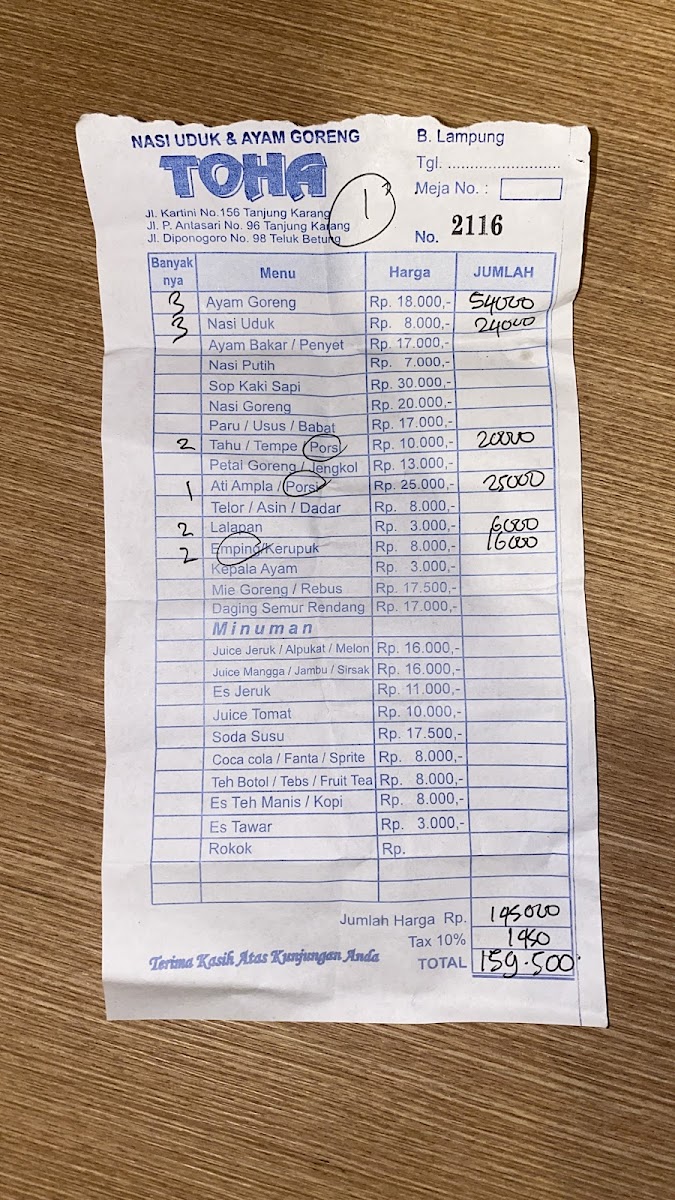 NASI UDUK & AYAM GORENG
TOHA
Jl. Kartini No.156 Tanjung Karang
Jl. P. Antasari No. 96 Tanjung Karang
Jl. Diponogoro No. 98 Teluk Betung
1
B. Lampung
Tgl. ..........................
Meja No. :
No. 2116
Banyak nya Menu Harga JUMLAH
3 Ayam Goreng Rp. 18.000,- 54000
3 Nasi Uduk Rp. 8.000,- 24000
Ayam Bakar / Penyet Rp. 17.000,-
Nasi Putih Rp. 7.000,-
Sop Kaki Sapi Rp. 30.000,-
Nasi Goreng Rp. 20.000,-
Paru / Usus / Babat Rp. 17.000,-
2 Tahu / Tempe / Porsi Rp. 10.000,- 20000
Petai Goreng / Jengkol Rp. 13.000,-
1 Ati Ampla / Porsi Rp. 25.000,- 25000
Telor / Asin / Dadar Rp. 8.000,-
2 Lalapan Rp. 3.000,- 6000
2 Emping/Kerupuk Rp. 8.000,- 16000
Kepala Ayam Rp. 3.000,-
Mie Goreng / Rebus Rp. 17.500,-
Daging Semur Rendang Rp. 17.000,-
Minuman
Juice Jeruk / Alpukat / Melon Rp. 16.000,-
Juice Mangga / Jambu / Sirsak Rp. 16.000,-
Es Jeruk Rp. 11.000,-
Juice Tomat Rp. 10.000,-
Soda Susu Rp. 17.500,-
Coca cola / Fanta / Sprite Rp. 8.000,-
Teh Botol / Tebs / Fruit Tea Rp. 8.000,-
Es Teh Manis / Kopi Rp. 8.000,-
Es Tawar Rp. 3.000,-
Rokok Rp.
Jumlah Harga Rp. 145000
Tax 10% 1450
TOTAL 159.500
Terima Kasih Atas Kunjungan Anda